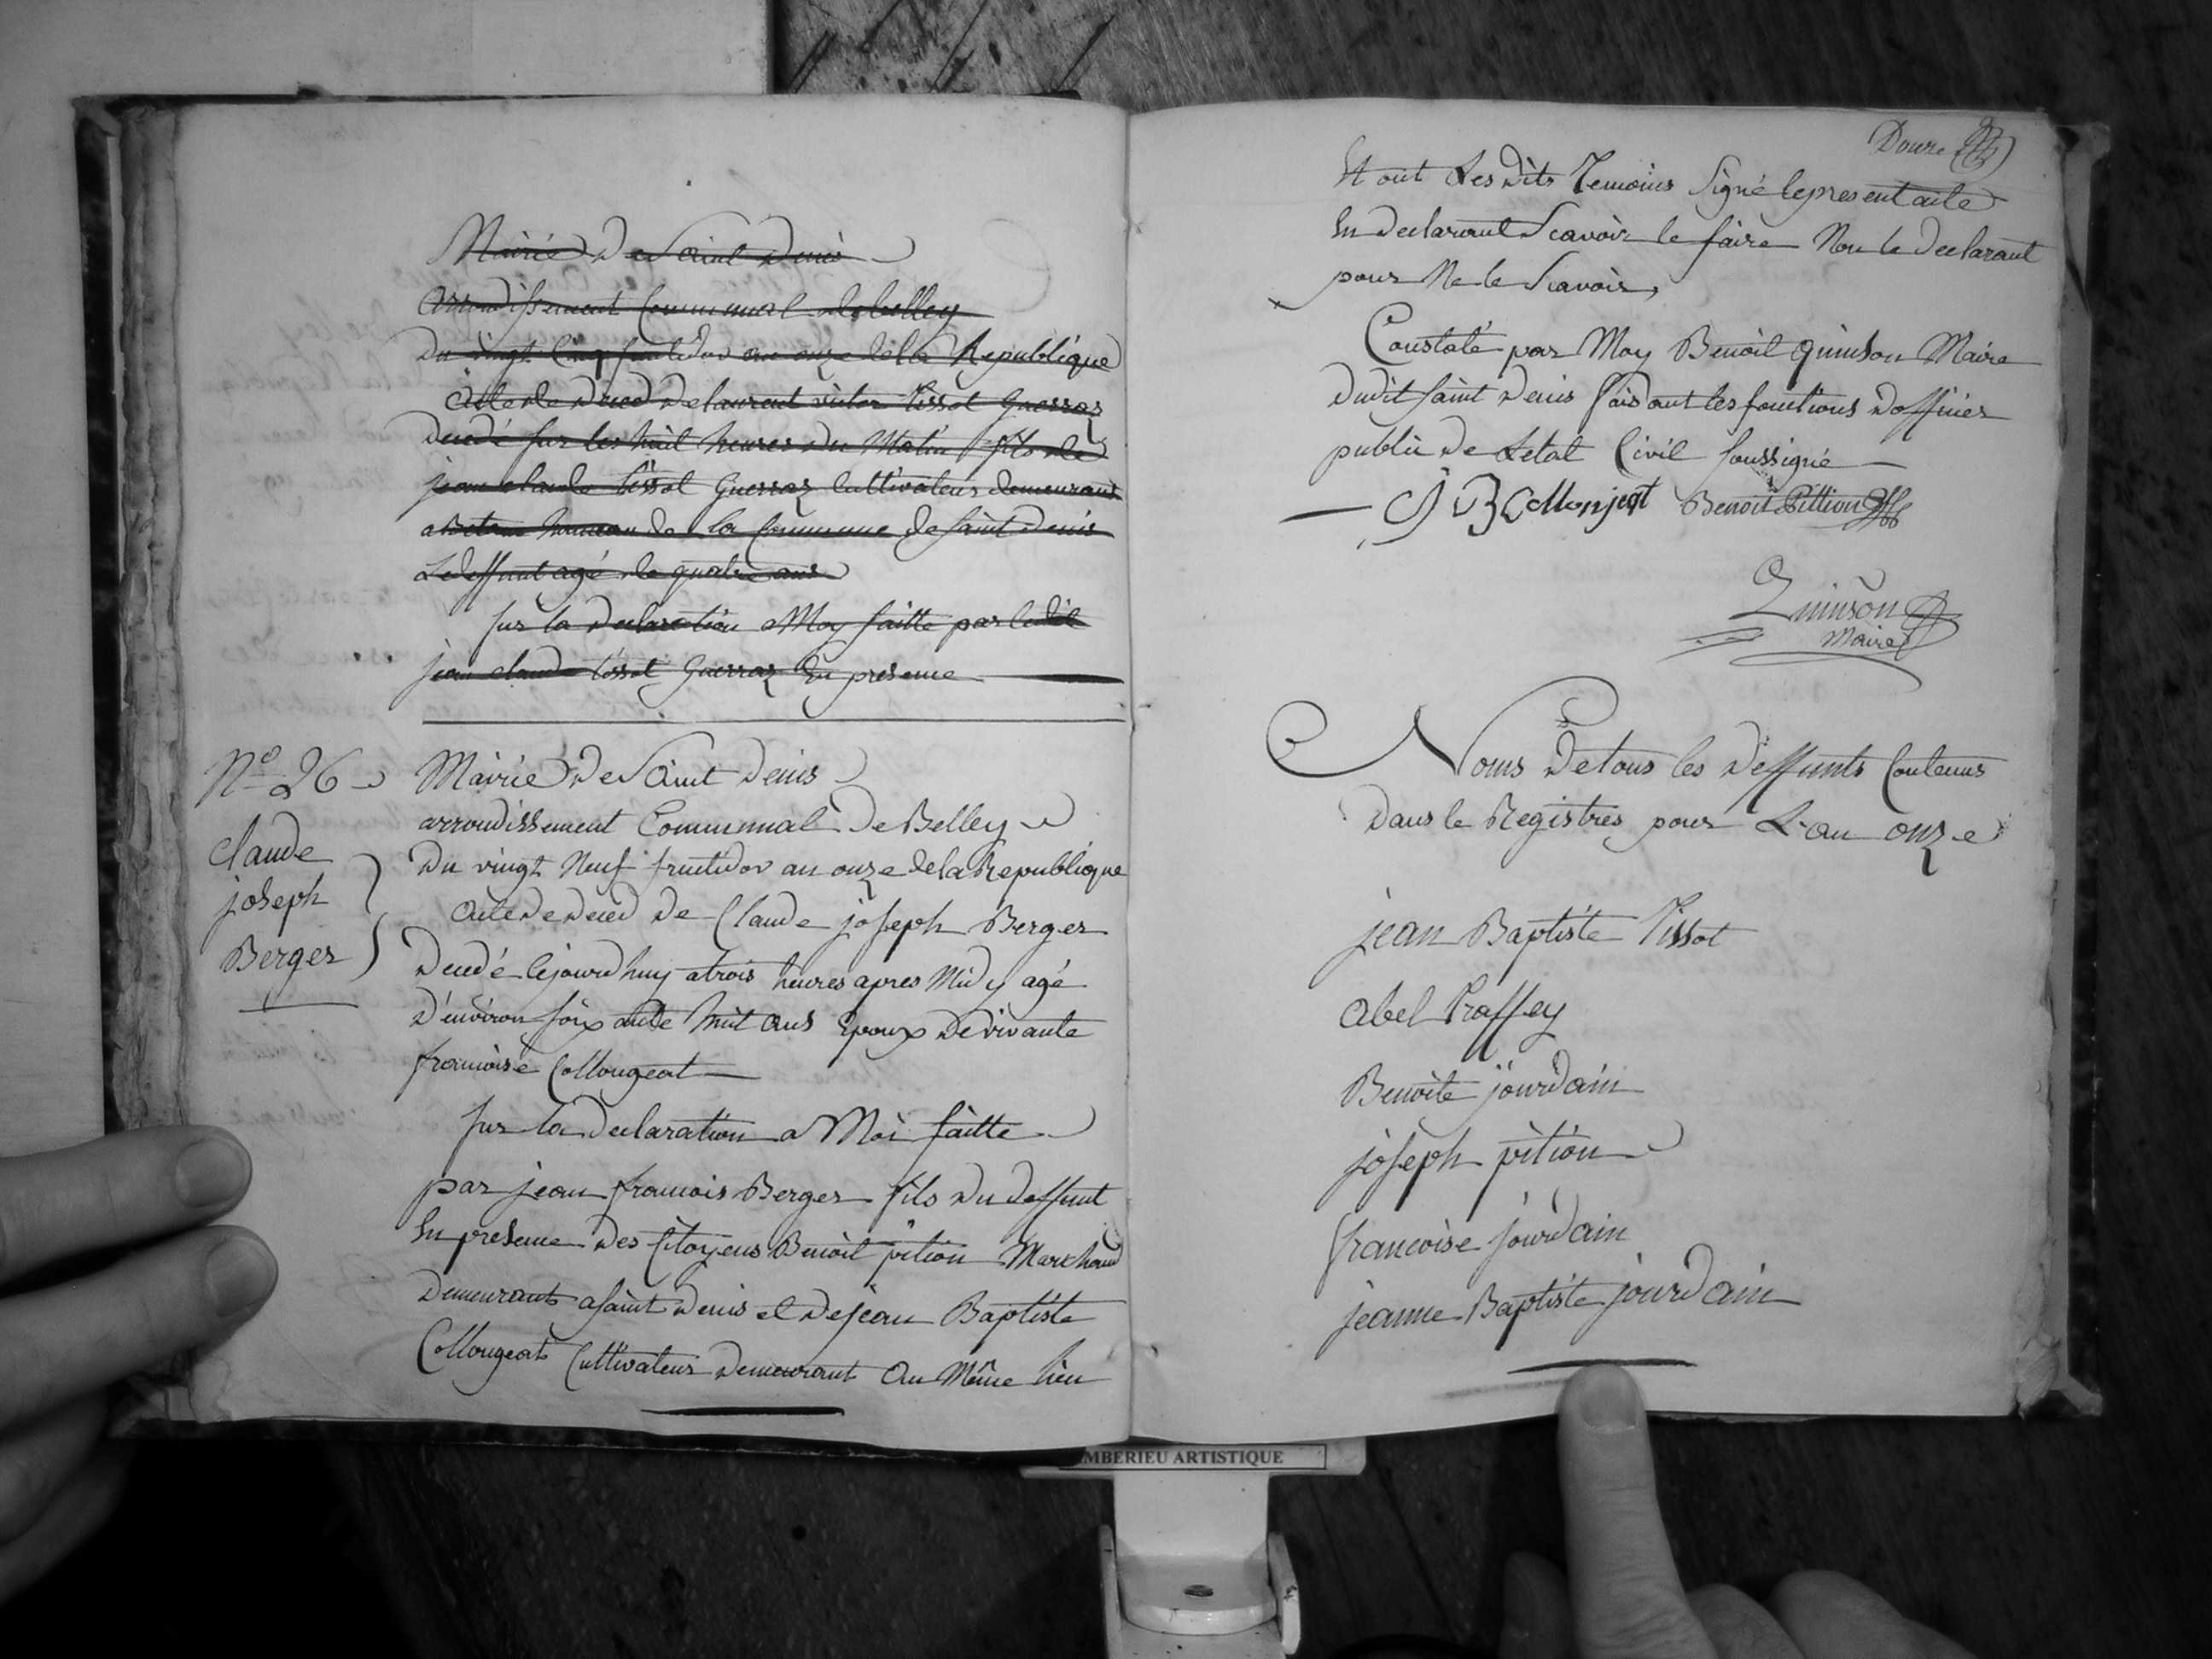 Mairie de Saint Denis
arrondissement Communal de belley
Du vingt Cinq fructidor an onze dela Republique
Acte de Deced de laurent victor tissot Guerraz
Decedé sur les huit heures du Matin fils de
jean claude tissot Guerraz Cultivateur demeurant
hameau de la Commune de Saint Denis
Ledeffunt agé de quatre ans
sur la Declaration a Moy faitte par ledit
jean claude tissot Guerraz En presence
N.o 26
claude
joseph
Berger
Mairie de Saint denis
arrondissement Communal De Belley
Du vingt Neuf fructidor an onze dela Republique
Acte de deced de Claude joseph Berger
Decedé cejourdhuy atrois heures apres Midy agé
D'environ soixante huit ans Epoux De vivante
francoise Collougeat
sur la declaration a Moi faitte
par jean francois Berger fils du deffunt
En presence des Citoyens Benoit pition Marchand
Demeurant asaint Denis et De jean Baptiste
Collougeat Cultivateur Demeurant au Même lieu
Douze
Et ont Les Dits Temoins Signé le present acte
En declarant Scavoir le faire Non le declarant
pour Ne le Scavoir,
Constaté par Moy Benoit quinson Maire
dudit Saint Denis faisant les fonctions Dofficier
public De Letat Civil soussigné
J B Collonjeat Benoit Pittion
Quinson
Maire
Noms De tous les deffunts Contenus
Dans le Registres pour L'an onze
jean Baptiste Tissot
Abel Traffey
Benoite jourdain
joseph pition
francoise jourdain
jeanne Baptiste jourdain
MBERIEU ARTISTIQUE